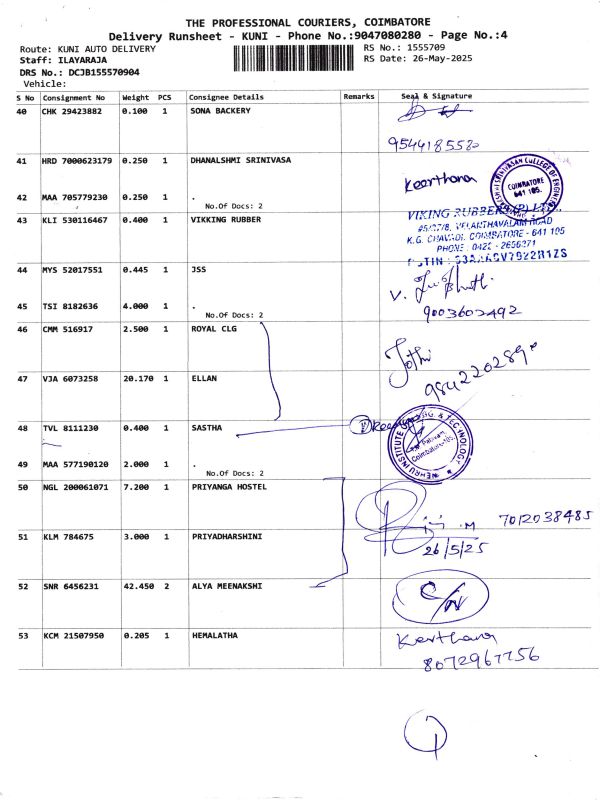 THE PROFESSIONAL COURIERS, COIMBATORE
Delivery Runsheet - KUNI - Phone No.:9047080280 - Page No.:4
Route: KUNI AUTO DELIVERY RS No.: 1555709
Staff: ILAYARAJA RS Date: 26-May-2025
DRS No.: DCJB155570904
Vehicle:
S No Consignment No Weight PCS Consignee Details Remarks Seal & Signature
40 CHK 29423882 0.100 1 SONA BACKERY
9544185580
41 HRD 7000623179 0.250 1 DHANALSHMI SRINIVASA
Keerthana
COIMBATORE
641 105.
42 MAA 705779230 0.250 1 .
No.Of Docs: 2
43 KLI 530116467 0.400 1 VIKKING RUBBER
VIKING RUBBERS (P) LTD.,
VELANTHAVALAM ROAD
K.G. CHAVADI, COIMBATORE - 641 105
PHONE : 0422 - 2656371
44 MYS 52017551 0.445 1 JSS
V.
9003602492
45 TSI 8182636 4.000 1 .
No.Of Docs: 2
46 CMM 516917 2.500 1 ROYAL CLG
Jothi
9842202890
47 VJA 6073258 20.170 1 ELLAN
48 TVL 8111230 0.400 1 SASTHA
NEHRU INSTITUTE OF ENGG. & TECHNOLOGY
Coimbatore-105
49 MAA 577190120 2.000 1 .
No.Of Docs: 2
50 NGL 200061071 7.200 1 PRIYANGA HOSTEL
7012038485
26/5/25
51 KLM 784675 3.000 1 PRIYADHARSHINI
52 SNR 6456231 42.450 2 ALYA MEENAKSHI
53 KCM 21507950 0.205 1 HEMALATHA
Keerthana
8072967756